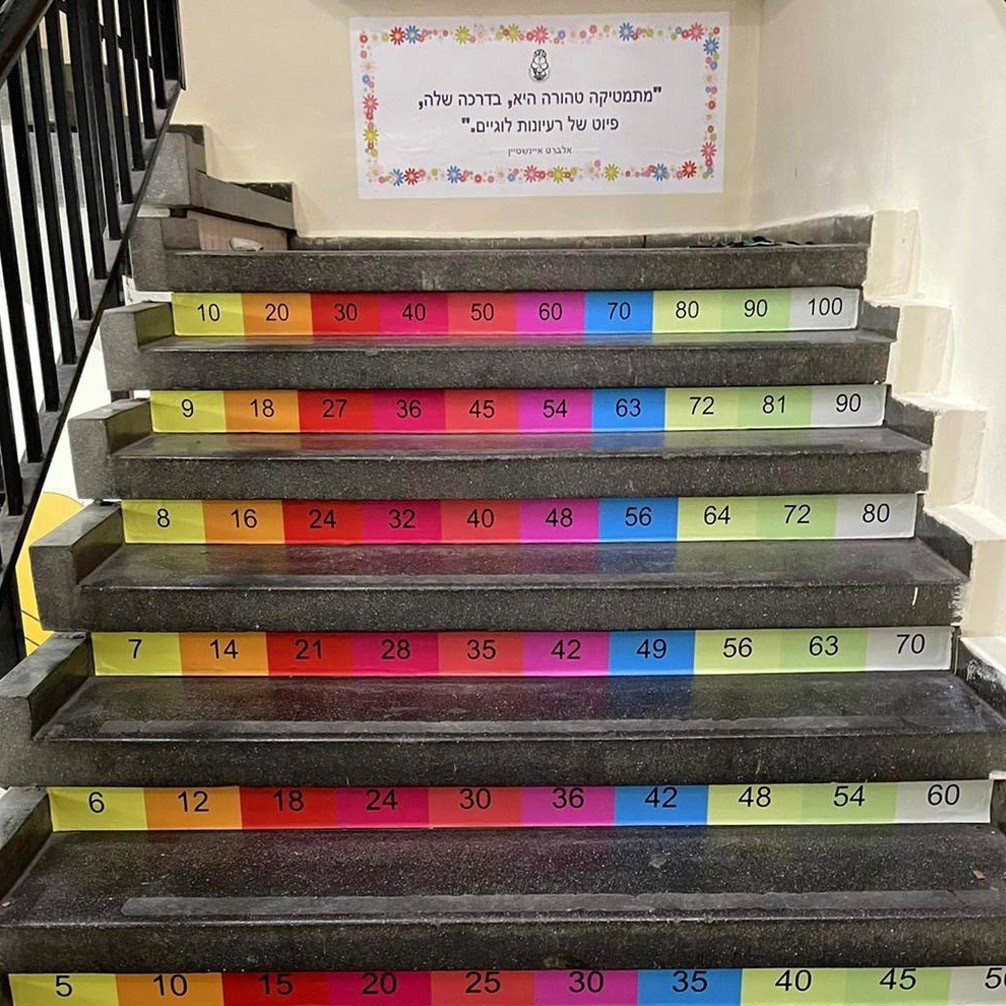 "מתמטיקה טהורה היא, בדרכה שלה,
פיוט של רעיונות לוגיים."
אלברט איינשטיין
10 20 30 40 50 60 70 80 90 100
9 18 27 36 45 54 63 72 81 90
8 16 24 32 40 48 56 64 72 80
7 14 21 28 35 42 49 56 63 70
6 12 18 24 30 36 42 48 54 60
5 10 15 20 25 30 35 40 45